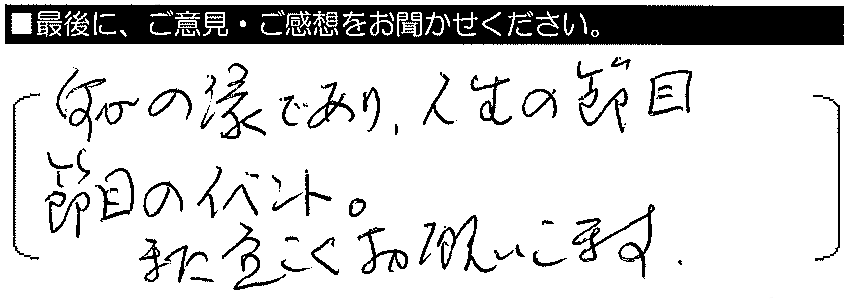 ■最後に、ご意見・ご感想をお聞かせください。
何かの縁であり、人生の節目
節目のイベント。
また宜しくお願いします.